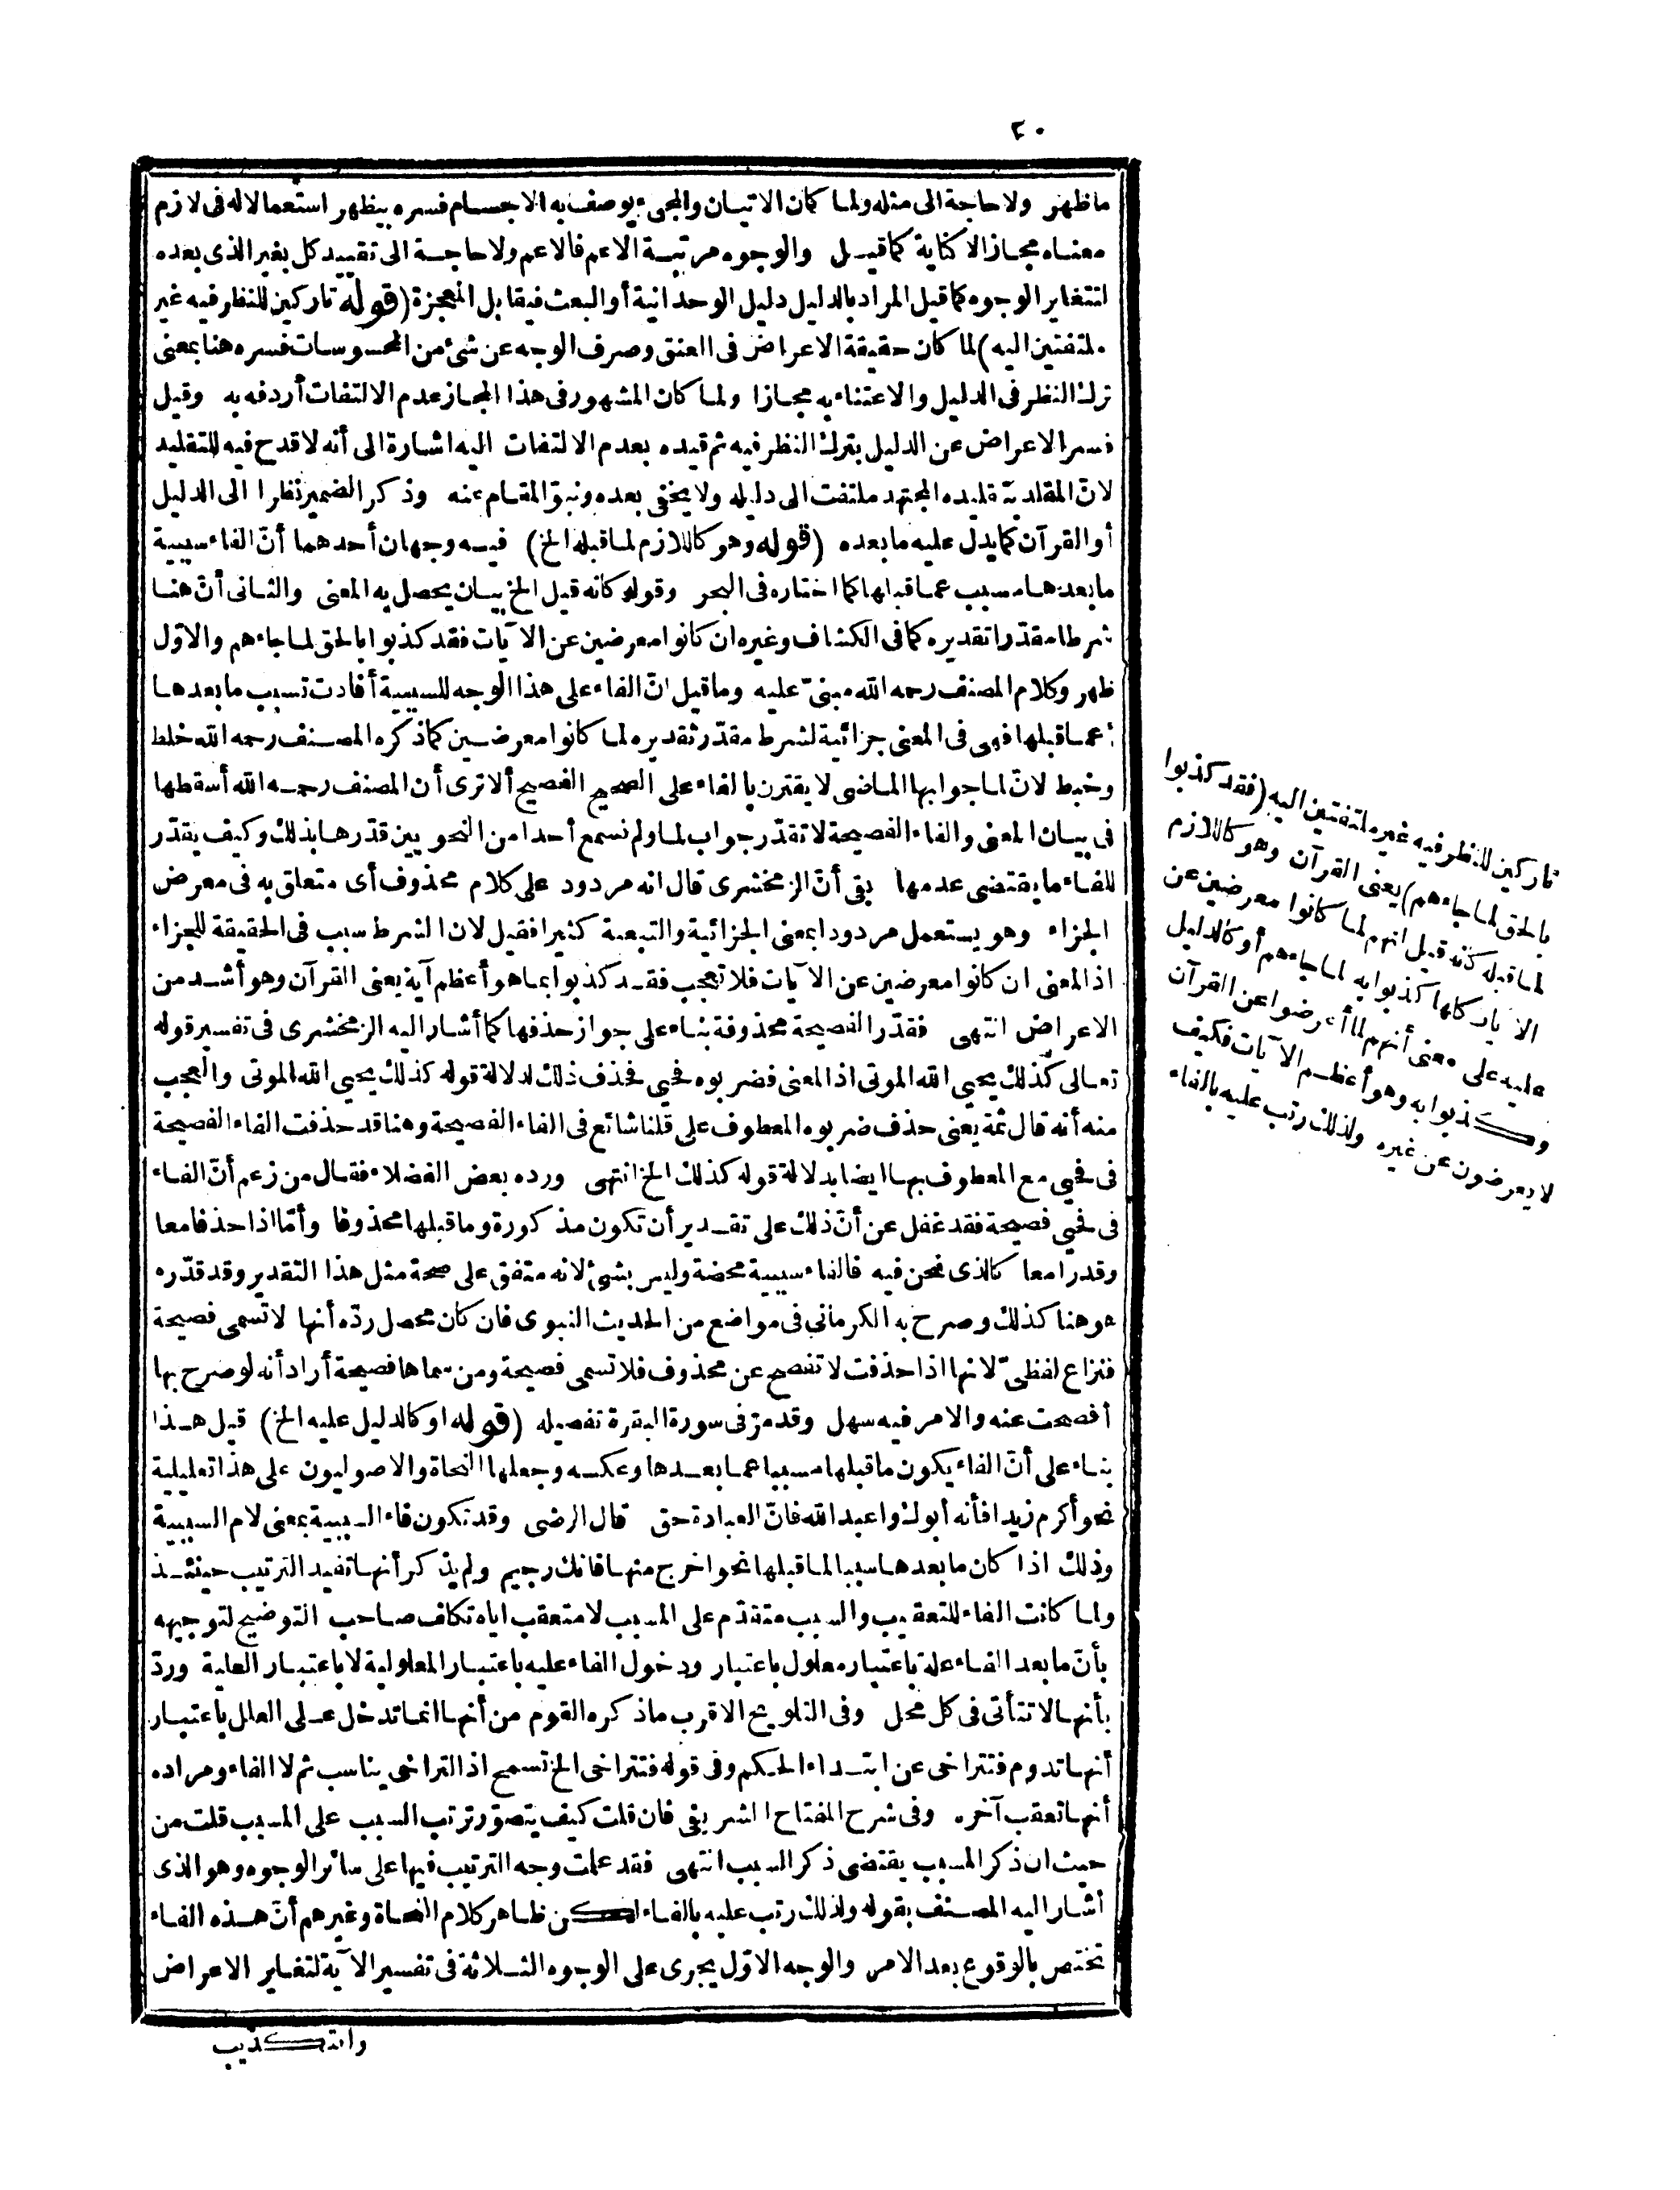 ٢٠
ما ظهر ولا حاجة الى مثله ولما كان الاتيان والمجىء يوصف به الاجسام فسره بيظهر استعمالا له فى لازم
معناه مجازا لا كناية كما قيل والوجوه مرتبة الاعم فالاعم ولا حاجة الى تقييد كل بغير الذى بعده
لتتغاير الوجوه كما قيل المراد بالدليل دليل الوحدانية أو البعث فيقابل المعجزة (قوله تاركين للنظر فيه غير
ملتفتين اليه) لما كان حقيقة الاعراض فى العنق وصرف الوجه عن شئ من المحسوسات فسره هنا بمعنى
ترك النظر فى الدليل والاعتناء به مجازا ولما كان المشهور فى هذا المجاز عدم الالتفات أردفه به وقيل
فسر الاعراض عن الدليل بترك النظر فيه ثم قيده بعدم الالتفات اليه اشارة الى أنه لا قدح فيه للتقليد
لانّ المقلد بتقليده المجتهد ملتفت الى دليله ولا يخفى بعده ونبوّ المقام عنه وذكر الضمير نظرا الى الدليل
أو القرآن كما يدل عليه ما بعده (قوله وهو كاللازم لما قبله الخ) فيه وجهان أحدهما أنّ الفاء سببية
ما بعدها مسبب عما قبلها كما اختاره فى البحر وقوله كانه قيل الخ بيان يحصل به المعنى والثانى أنّ هنا
شرطا مقدّرا تقديره كما فى الكشاف وغيره ان كانوا معرضين عن الآيات فقد كذبوا بالحق لما جاءهم والاوّل
ظهر وكلام المصنف رحمه الله مبنىّ عليه وما قيل انّ الفاء على هذا الوجه للسببية أفادت تسبب ما بعدها
عما قبلها فهى فى المعنى جزائية لشرط مقدّر تقديره لما كانوا معرضين كما ذكره المصنف رحمه الله خلط
وخبط لانّ لما جوابها الماضى لا يقترن بالفاء على الصحيح الفصيح ألا ترى أن المصنف رحمه الله أسقطها
فى بيان المعنى والفاء الفصيحة لا تقدّر جواب لما ولم نسمع أحدا من النحويين قدّرها بذلك وكيف يقدّر
للفاء ما يقتضى عدمها بقى أنّ الزمخشرى قال انه مردود على كلام محذوف أى متعلق به فى معرض
الجزاء وهو يستعمل مردودا بمعنى الجزائية والتبعية كثيرا فقيل لان الشرط سبب فى الحقيقة للجزاء
اذ المعنى ان كانوا معرضين عن الآيات فلا تعجب فقد كذبوا بما هو أعظم آية يعنى القرآن وهو أشد من
الاعراض انتهى فقدّر الفصيحة محذوفة بناء على جواز حذفها كما أشار اليه الزمخشرى فى تفسير قوله
تعالى كذلك يحيى الله الموتى اذ المعنى فضربوه فحيى فحذف ذلك لدلالة قوله كذلك يحيى الله الموتى والعجب
منه أنه قال ثمة يعنى حذف ضربوه المعطوف على قلنا شائع فى الفاء الفصيحة وهنا قد حذفت الفاء الفصيحة
فى فحيى مع المعطوف بها ايضا بدلالة قوله كذلك الخ انتهى ورده بعض الفضلاء فقال من زعم أنّ الفاء
فى فحيى فصيحة فقد غفل عن أنّ ذلك على تقدير أن تكون مذكورة وما قبلها محذوفا وأمّا اذا حذفا معا
وقدرا معا كالذى نحن فيه فالفاء سببية محضة وليس بشئ لانه متفق على صحة مثل هذا التقدير وقد قدّره
هو هنا كذلك وصرح به الكرمانى فى مواضع من الحديث النبوى فان كان محصل ردّه أنها لا تسمى فصيحة
فنزاع لفظىّ لانها اذا حذفت لا تفصح عن محذوف فلا تسمى فصيحة ومن سماها فصيحة أراد أنه لو صرح بها
أفصحت عنه والامر فيه سهل وقد مرّ فى سورة البقرة تفصيله (قوله او كالدليل عليه الخ) قيل هذا
بناء على أنّ الفاء يكون ما قبلها مسببا عما بعدها وعكسه وجعلها النحاة والاصوليون على هذا تعليلية
نحو أكرم زيدا فأنه أبوك واعبد الله فانّ العبادة حق قال الرضى وقد تكون فاء السببية بمعنى لام السببية
وذلك اذا كان ما بعدها سببا لما قبلها نحو اخرج منها فانك رجيم ولم يذكر أنها تفيد الترتيب حينئذ
ولما كانت الفاء للتعقيب والسبب متقدّم على المسبب لا متعقب اياه تكلف صاحب التوضيح لتوجيهه
بأنّ ما بعد الفاء علة باعتبار معلول باعتبار ودخول الفاء عليه باعتبار المعلولية لا باعتبار العلية وردّ
بأنها لا تتأتى فى كل محل وفى التلويح الاقرب ما ذكره القوم من أنها انما تدخل على العلل باعتبار
أنها تدوم فتتراخى عن ابتداء الحكم وفى قوله فتتراخى الخ تسمح اذ التراخى يناسب ثم لا الفاء ومراده
أنها تعقب آخره وفى شرح المفتاح الشريفى فان قلت كيف يتصوّر ترتب السبب على المسبب قلت من
حيث ان ذكر المسبب يقتضى ذكر السبب انتهى فقد علمت وجه الترتيب فيها على سائر الوجوه وهو الذى
أشار اليه المصنف بقوله ولذلك رتب عليه بالفاء لكن ظاهر كلام النحاة وغيرهم أنّ هذه الفاء
تختص بالوقوع بعد الامر والوجه الاوّل يجرى على الوجوه الثلاثة فى تفسير الآية لتغاير الاعراض
والتكذيب
تاركين للنظر فيه غير ملتفتين اليه (فقد كذبوا
بالحق لما جاءهم) يعنى القرآن وهو كاللازم
لما قبله كأنه قيل انهم لما كانوا معرضين عن
الآيات كلها كذبوا به لما جاءهم أو كالدليل
عليه على معنى أنهم لما أعرضوا عن القرآن
وكذبوا به وهو أعظم الآيات فكيف
لا يعرضون عن غيره ولذلك رتب عليه بالفاء